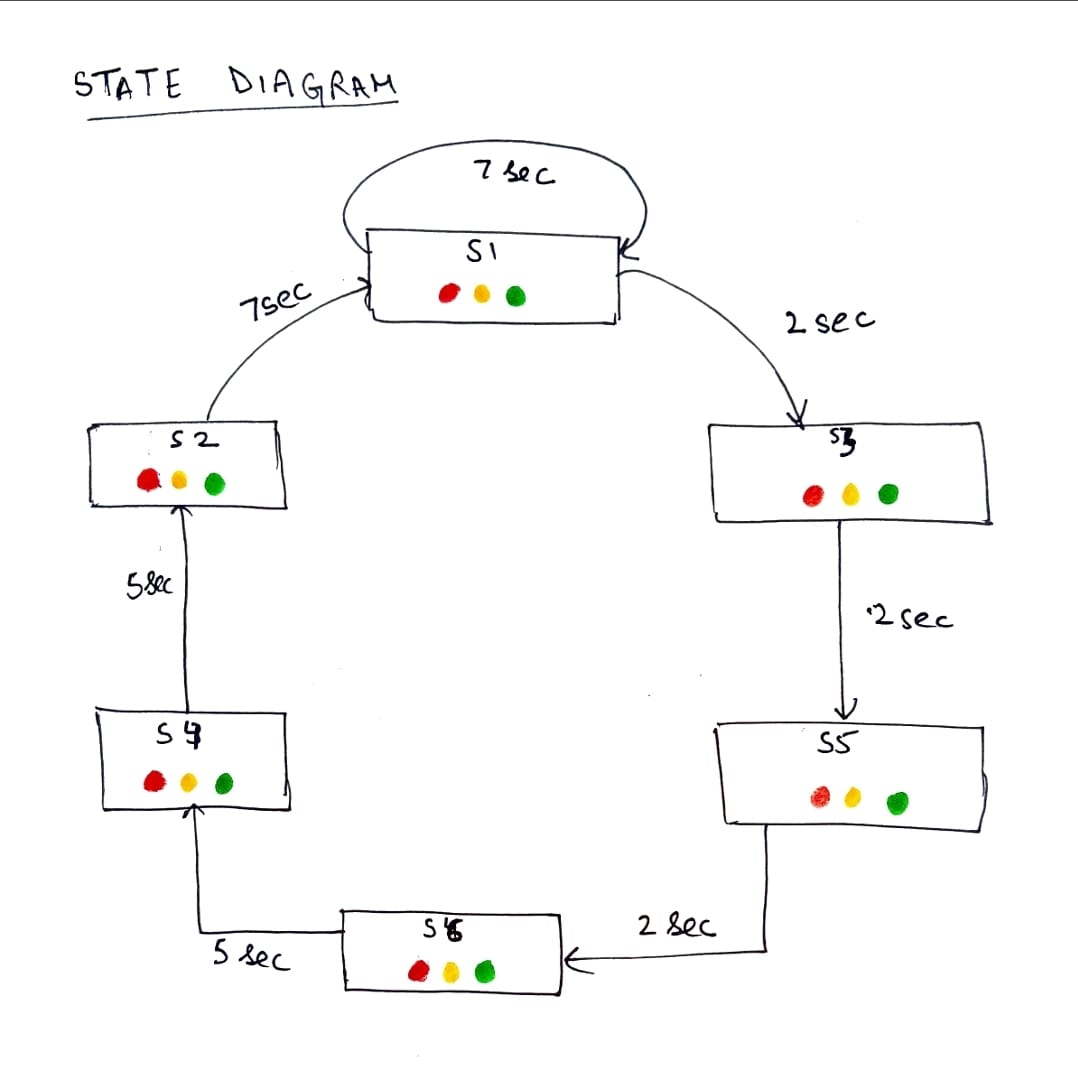 STATE DIAGRAM
7 sec
S1
7sec
2 sec
S2
S3
5 sec
2 sec
S4
S5
S6
2 sec
5 sec